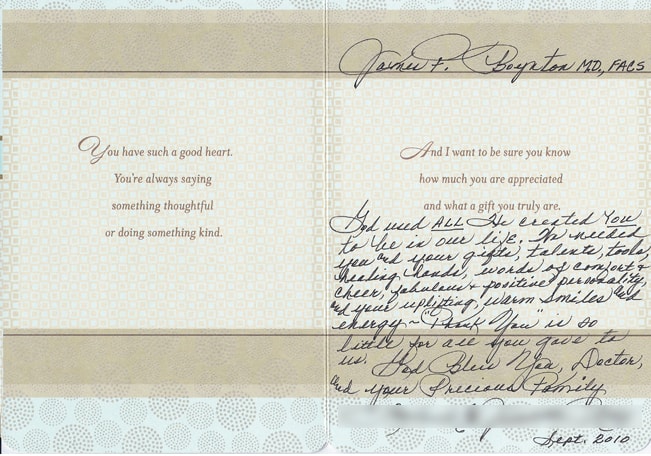 You have such a good heart.
You're always saying
something thoughtful
or doing something kind.
James F. Boynton MD, FACS
And I want to be sure you know
how much you are appreciated
and what a gift you truly are.
God used ALL He created YOU
to be in our life, We needed
you and your gifts, talents, tools,
healing hands, words of comfort &
cheer, fabulous & positive personality,
and your uplifting, warm smiles and
energy ~ "Thank You" is so
little for all you gave to
us. God Bless You, Doctor,
and your Precious Family
Sept. 2010